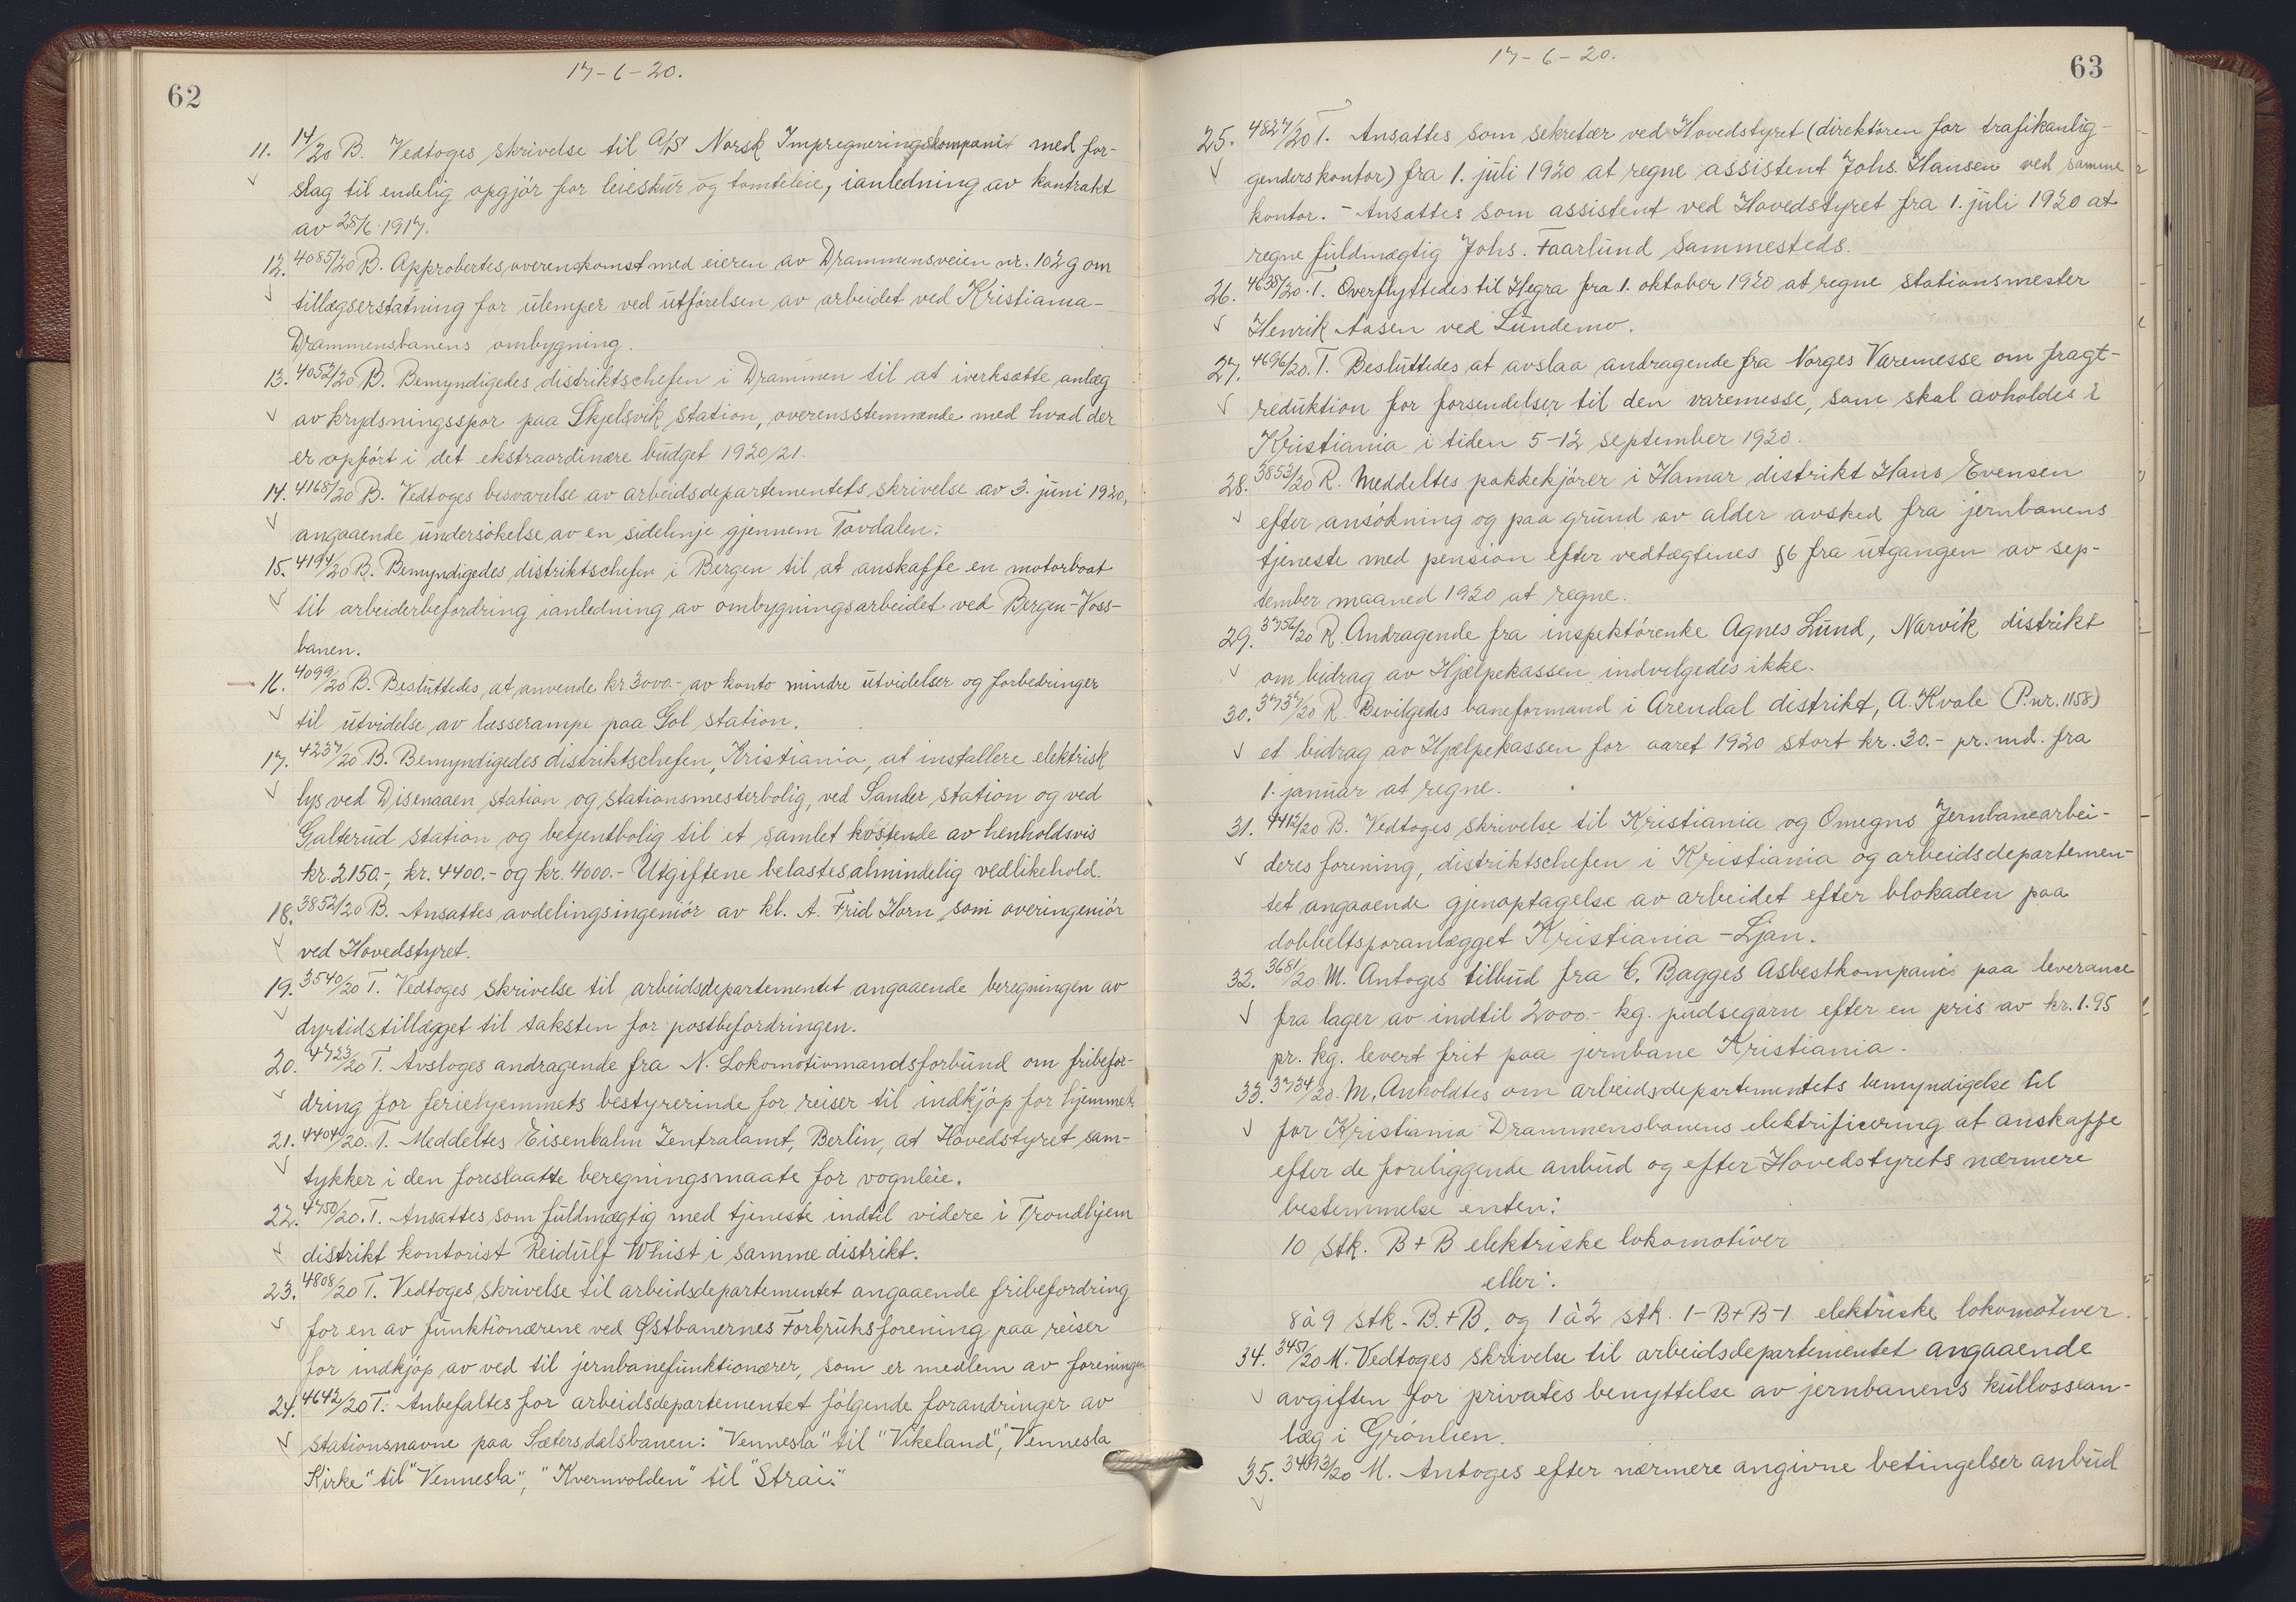 62
17-6-20.
11. 14/20 B. Vedtoges skrivelse til A/S Norsk Impregneringskompani med for-
slag til endelig opgjör for leieskur og tomteleie, ianledning av kontrakt
av 28/6 1917.
12. 4085/20 B. Approbertes overenskomst med eieren av Drammensveien nr. 102 g om
tillægserstatning for ulemper ved utförelsen av arbeidet ved Kristiania-
Drammensbanens ombygning.
13. 4052/20 B. Bemyndigedes distriktschefen i Drammen til at iverksætte anlæg
av krydsningsspor paa Skjelsvik station, overensstemmende med hvad der
er opfört i det ekstraordinære budget 1920/21.
14. 4168/20 B. Vedtoges besvarelse av arbeidsdepartementets skrivelse av 3. juni 1920,
angaaende undersökelse av en sidelinje gjennem Tovdalen.
15. 4194/20 B. Bemyndigedes distriktschefen i Bergen til at anskaffe en motorboat
til arbeiderbefordring ianledning av ombygningsarbeidet ved Bergen-Voss-
banen.
16. 4099/20 B. Besluttedes at anvende kr 3000.- av konto mindre utvidelser og forbedringer
til utvidelse av læsserampe paa Gol station.
17. 4237/20 B. Bemyndigedes distriktschefen, Kristiania, at installere elektrisk
lys ved Disenaaen station og stationsmesterbolig, ved Sander station og ved
Galterud station og betjentbolig til et samlet kostende av henholdsvis
kr. 2150.-, kr. 4400.- og kr. 4000.- Utgiftene belastes almindelig vedlikehold.
18. 3852/20 B. Ansattes avdelingsingeniör av kl. A. Frid Horn som overingeniör
ved Hovedstyret.
19. 3540/20 T. Vedtoges skrivelse til arbeidsdepartementet angaaende beregningen av
dyrtidstillægget til taksten for postbefordringen.
20. 4723/20 T. Avsloges andragende fra N. Lokomotivmandsforbund om fribefor-
dring for feriehjemmets bestyrerinde for reiser til indkjöp for hjemmet.
21. 4404/20. T. Meddeltes Eisenbahn Zentralamt, Berlin, at Hovedstyret sam-
tykker i den foreslaatte beregningsmaate for vognleie.
22. 4750/20. T. Ansattes som fuldmægtig med tjeneste indtil videre i Trondhjem
distrikt kontorist Reidulf Whist i samme distrikt.
23. 4808/20 T. Vedtoges skrivelse til arbeidsdepartementet angaaende fribefordring
for en av funktionærene ved Østbanernes Forbruksforening paa reiser
for indkjöp av ved til jernbanefunktionærer, som er medlem av foreningen
24. 4642/20 T. Anbefaltes for arbeidsdepartementet fölgende forandringer av
stationsnavne paa Sætersdalsbanen: "Vennesla" til "Vikeland", "Vennesla
Kirke" til "Vennesla", "Kvernvolden" til "Strai."
63
17-6-20.
25. 4827/20 T. Ansattes som sekretær ved Hovedstyret (direktören for trafikanlig-
genders kontor) fra 1. juli 1920 at regne assistent Johs. Hansen ved samme
kontor. - Ansattes som assistent ved Hovedstyret fra 1. juli 1920 at
regne fuldmægtig Johs. Faarlund sammesteds.
26. 4638/20. T. Overflyttedes til Hegra fra 1. oktober 1920 at regne stationsmester
Henrik Aasen ved Lundemo.
27. 4696/20. T. Besluttedes at avslaa andragende fra Norges Varemesse om fragt-
reduktion for forsendelser til den varemesse, som skal avholdes i
Kristiania i tiden 5-12 september 1920.
28. 3853/20 R. Meddeltes pakkekjörer i Hamar distrikt Hans Evensen
efter ansökning og paa grund av alder avsked fra jernbanens
tjeneste med pension efter vedtægtenes § 6 fra utgangen av sep-
tember maaned 1920 at regne.
29. 3756/20 R. Andragende fra inspektörenke Agnes Lund, Narvik distrikt
om bidrag av Hjælpekassen indvilgedes ikke.
30. 3737/20 R. Bevilgedes baneformand i Arendal distrikt, A. Kvale (P.nr. 1158)
et bidrag av Hjælpekassen for aaret 1920 stort kr. 30.- pr. md. fra
1. januar at regne.
31. 4415/20 B. Vedtoges skrivelse til Kristiania og Omegns Jernbanearbei-
deres forening, distriktschefen i Kristiania og arbeidsdepartemen-
tet angaaende gjenoptagelse av arbeidet efter blokaden paa
dobbeltsporanlægget Kristiania - Ljan.
32. 3681/20 M. Antoges tilbud fra C. Bagges Asbestkompani paa leverance
fra lager av indtil 2000.- kg. pudsegarn efter en pris av kr. 1.95
pr. kg. levert frit paa jernbane Kristiania.
33. 3734/20. M. Anholdtes om arbeidsdepartementets bemyndigelse til
for Kristiania Drammensbanens elektrificering at anskaffe
efter de foreliggende anbud og efter Hovedstyrets nærmere
bestemmelse enten:
10 stk. B+B elektriske lokomotiver
eller:
8 à 9 stk. B.+B. og 1 à 2 stk. 1-B+B-1 elektriske lokomotiver.
34. 3451/20 M. Vedtoges skrivelse til arbeidsdepartementet angaaende
avgiften for privates benyttelse av jernbanens kullossean-
læg i Grönlien.
35. 3493/20 M. Antoges efter nærmere angivne betingelser anbud